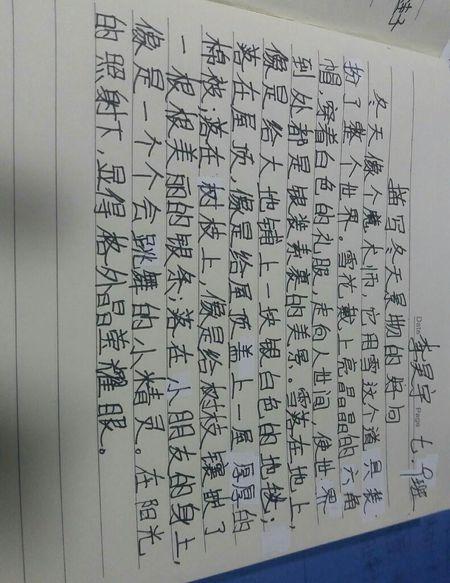 Date 李昊宇 Page 七.9班
描写冬天景物的疑问
冬天像个魔术师,它用雪这个道具装
扮了整个世界。雪花戴上亮晶晶的六角
帽,穿着白色的礼服,走向人世间,使世界
到处都是银装素裹的美景。雪落在地上,
像是给大地铺上一块银白色的地毯;
落在屋顶,像是给屋顶盖上一层厚厚的
棉被;落在树枝上,像是给树枝镶嵌了
一根根美丽的银条;落在小朋友的身上,
像是一个个会跳舞的小精灵。在阳光
的照射下,显得格外晶莹耀眼。